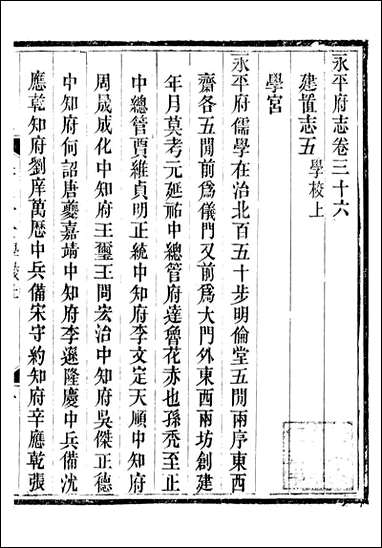 永平府志卷三十六
建置志五 學校上
學宮
永平府儒學在治北百五十步明倫堂五閒兩序東西
齋各五閒前爲儀門又前爲大門外東西兩坊創建
年月莫考元延祐中總管府達魯花赤也孫禿至正
中總管賈維貞明正統中知府李文定天順中知府
周晟成化中知府王璽王問宏治中知府吳傑正德
中知府何詔唐夔嘉靖中知府李遜隆慶中兵備沈
應乾知府劉庠萬歷中兵備宋守約知府辛應乾張